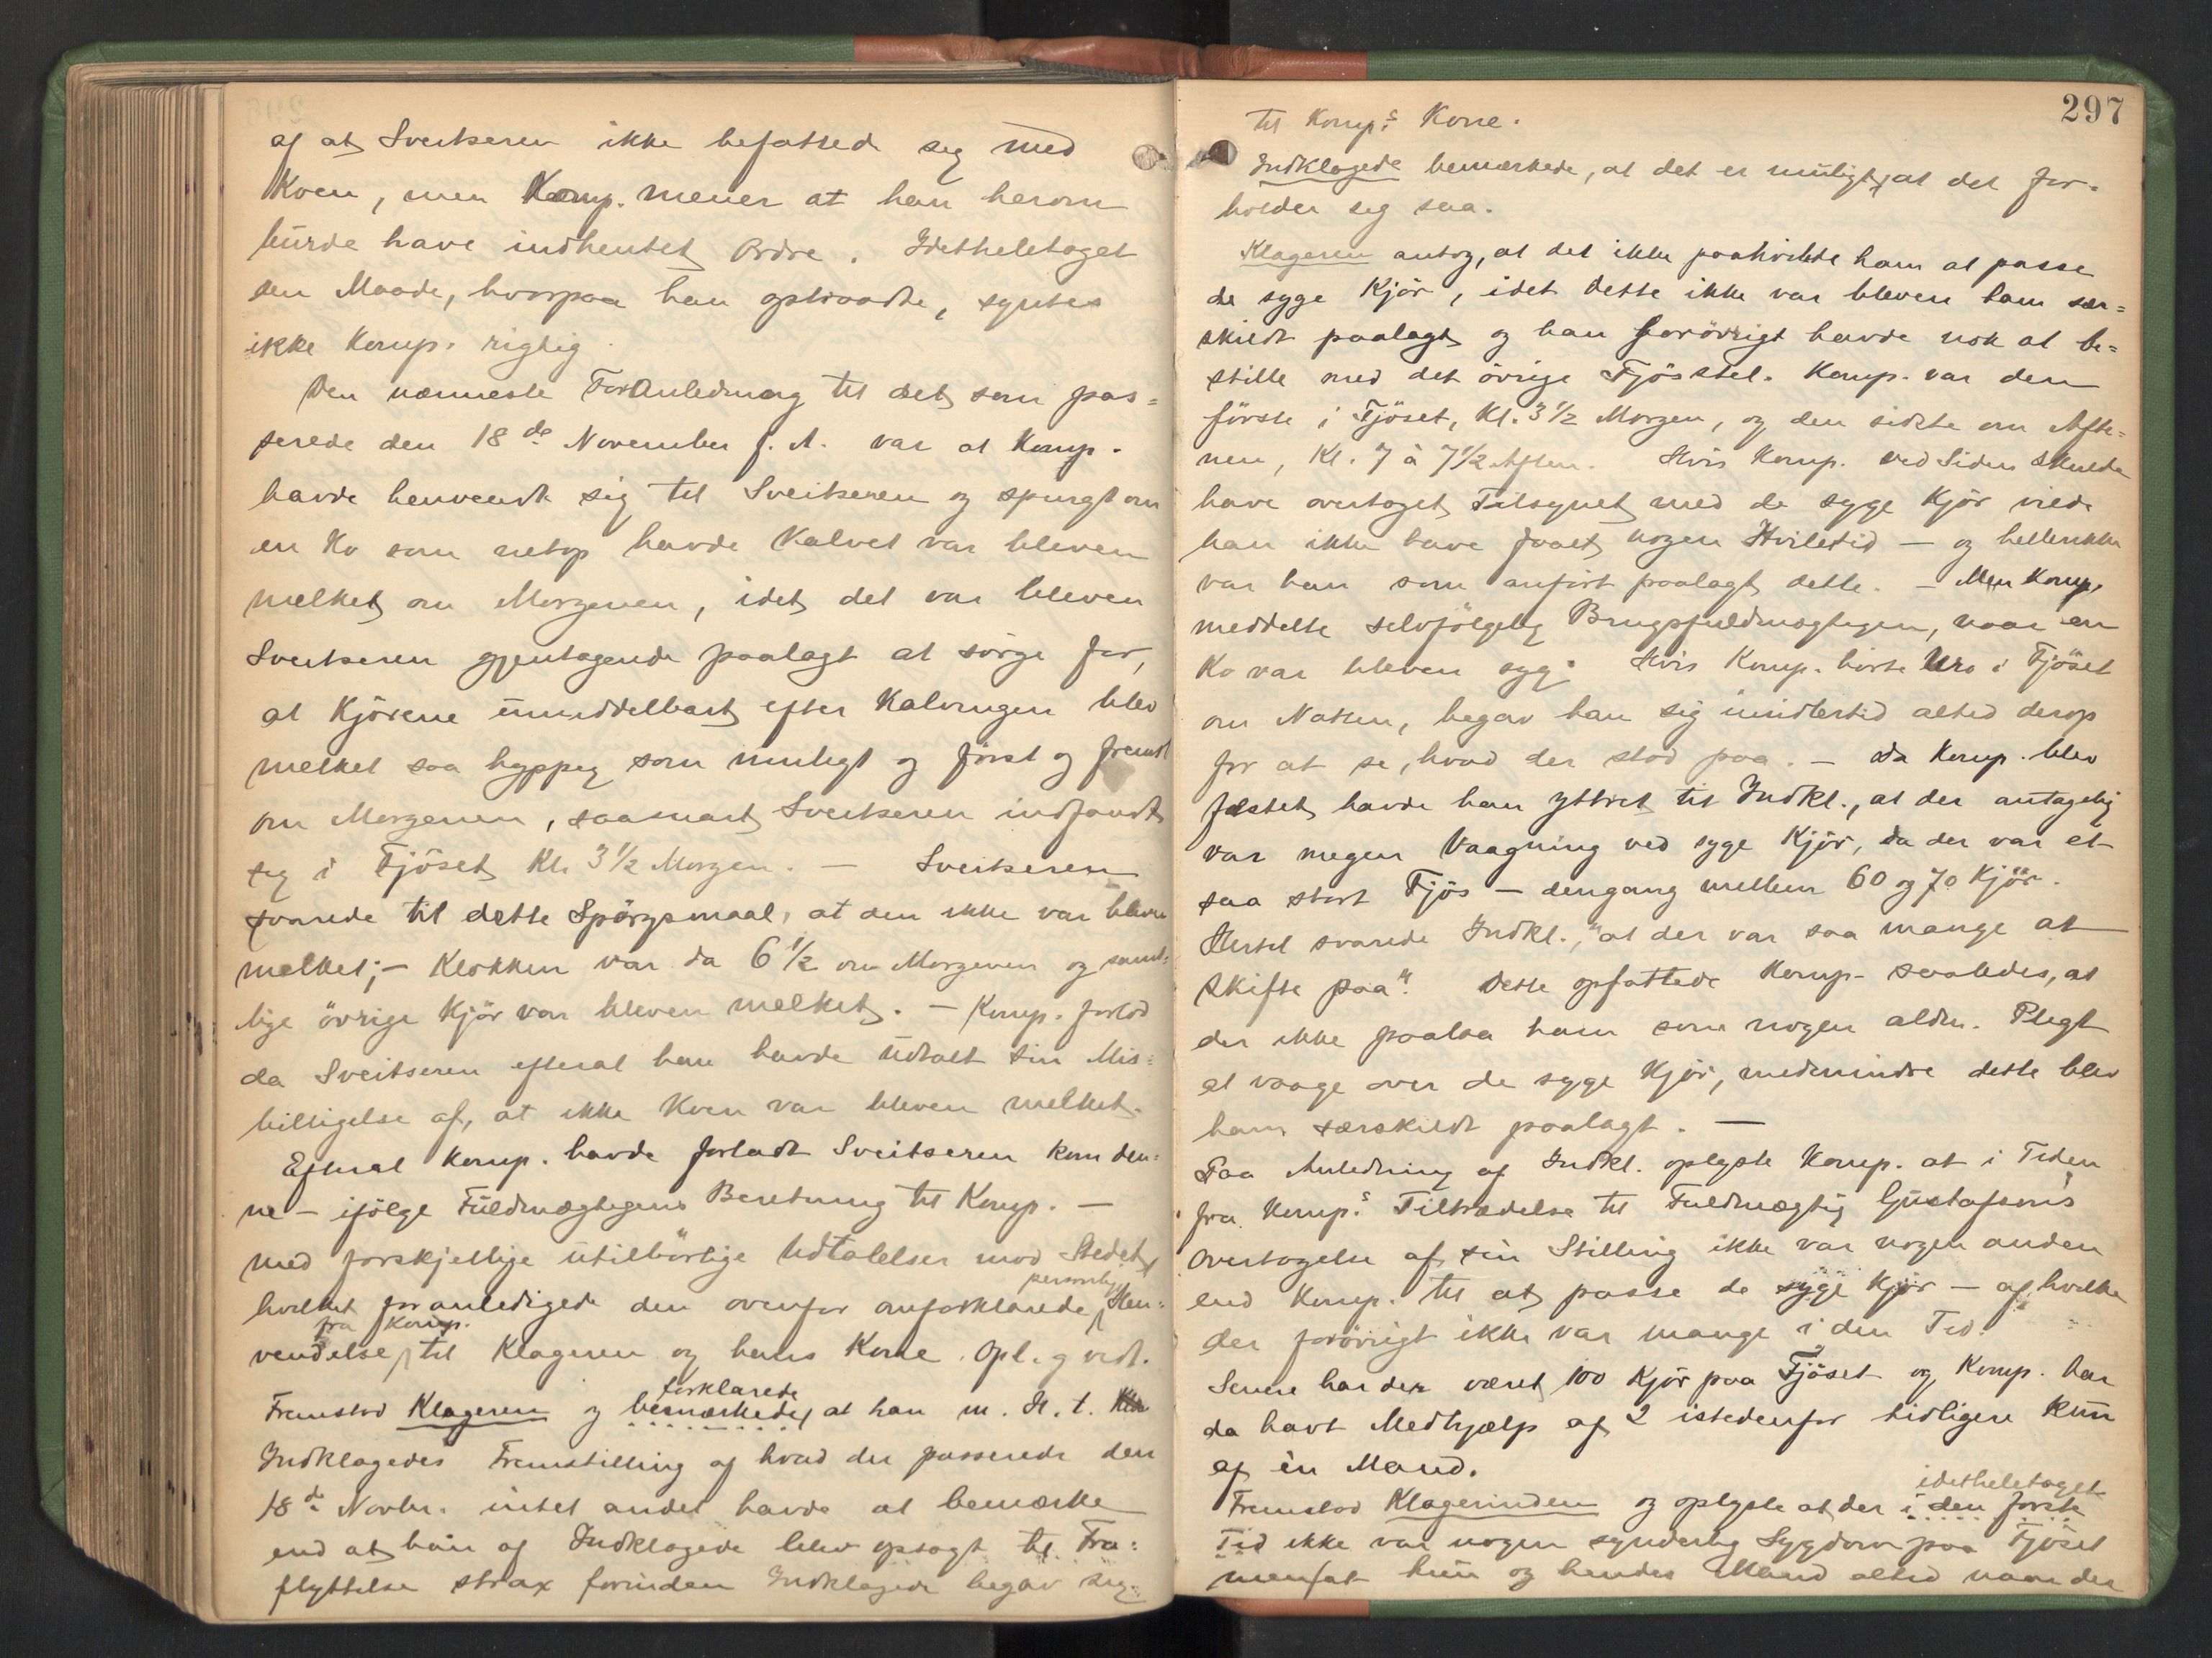 af at Sveitseren ikke befattede sig med
Koen, men Komp. mener at han herom
burde have indhentet Ordre. Idetheletaget
den Maade, hvorpaa han optraadte, syntes
ikke Komp. rigtig.
Den nærmeste Foranledning til det som pas-
serede den 18de November f. A. var at Komp.
havde henvendt sig til Sveitseren og spurgt om
en Ko som netop havde Kalvet var bleven
melket om Morgenen, idet det var bleven
Sveitseren gjentagende paalagt at sörge for,
at Kjörene umiddelbart efter Kalvingen blev
melket saa hyppig som muligt og först og fremst
om Morgenen, saasnart Sveitseren indfandt
sig i Fjöset Kl. 3 1/2 Morgen. — Sveitseren
svarede til dette Spörgsmaal, at den ikke var bleven
melket; – Klokken var da 6 1/2 om Morgenen og samt-
lige övrige Kjör var bleven melket. – Komp. forlod
da Sveitseren efterat han havde udtalt sin Mis-
billigelse af, at ikke Koen var bleven melket.
Efterat Komp. havde forladt Sveitseren kom den-
ne – ifölge Fuldmægtigens Beretning til Komp. –
med forskjellige utilbörlige Udtalelser mod Stedet,
personlig
hvilket foranledigede den ovenfor omforklarede Hen-
fra Komp.
vendelse til Klageren og hans Kone. Opl. g vedt.
forklarede
Fremstod Klageren og bemærkede, at han m. H. t.
Indklagedes Fremstilling af hvad der passerede den
18de Novbr. intet andet havde at bemærke
end at han af Indklagede blev opsagt til Fra-
flyttelse strax forinden Indklagede begav sig
297
til Komp.s Kone.
Indklagede bemærkede, at det er muligt, at det for-
holder sig saa.
Klageren antog, at det ikke paahvilte ham at passe
de syge Kjör, idet dette ikke var bleven ham sær-
skildt paalagt og han forövrigt havde nok at be-
stille med det övrige Fjösstel. Komp. var den
förste i Fjöset, Kl. 3 1/2 Morgen, og den sidste om Afte-
nen, Kl. 7 à 7 1/2 Aften. Hvis Komp. ved Siden skulde
have overtaget Tilsynet med de syge Kjör vilde
han ikke have faaet nogen Hviletid – og hellerikke
var han som anfört paalagt dette. – Men Komp.
meddelte selvfölgelig Brugsfuldmægtigen, naar en
Ko var bleven syg. Hvis Komp. hörte Uro i Fjöset
om Natten, begav han sig imidlertid altid derop
for at se, hvad der stod paa. – Da Komp. blev
fæstet havde han yttret til Indkl., at der antagelig
var megen Vaagning ved syge Kjör, da der var et
saa stort Fjös – dengang mellem 60 og 70 Kjör.
Hertil svarede Indkl., "at der var saa mange at
skifte paa". Dette opfattede Komp. saaledes, at
der ikke paalaa ham som nogen alm. Pligt
at vaage over de syge Kjör, medmindre dette blev
ham særskildt paalagt. —
Paa Anledning af Indkl. oplyste Komp. at i Tiden
fra Komp.s Tiltrædelse til Fuldmægtig Gustafsons
Overtagelse af sin Stilling ikke var nogen anden
end Komp. til at passe de syge Kjör – af hvilke
der forövrigt ikke var mange i den Tid.
Senere har der været 100 Kjör paa Fjöset og Komp. har
da havt Medhjælp af 2 istedenfor tidligere kun
af én Mand.
idetheletaget
Fremstod Klagerinden og oplyste at der i den förste
Tid ikke var nogen synderlig Sygdom paa Fjöset
men at hun og hendes Mand altid naar der